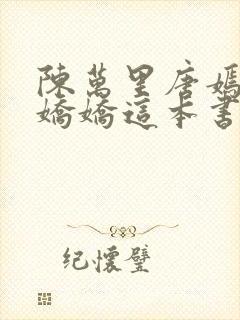 陳萬里唐媽
嬌嬌這本書
纪懷璧